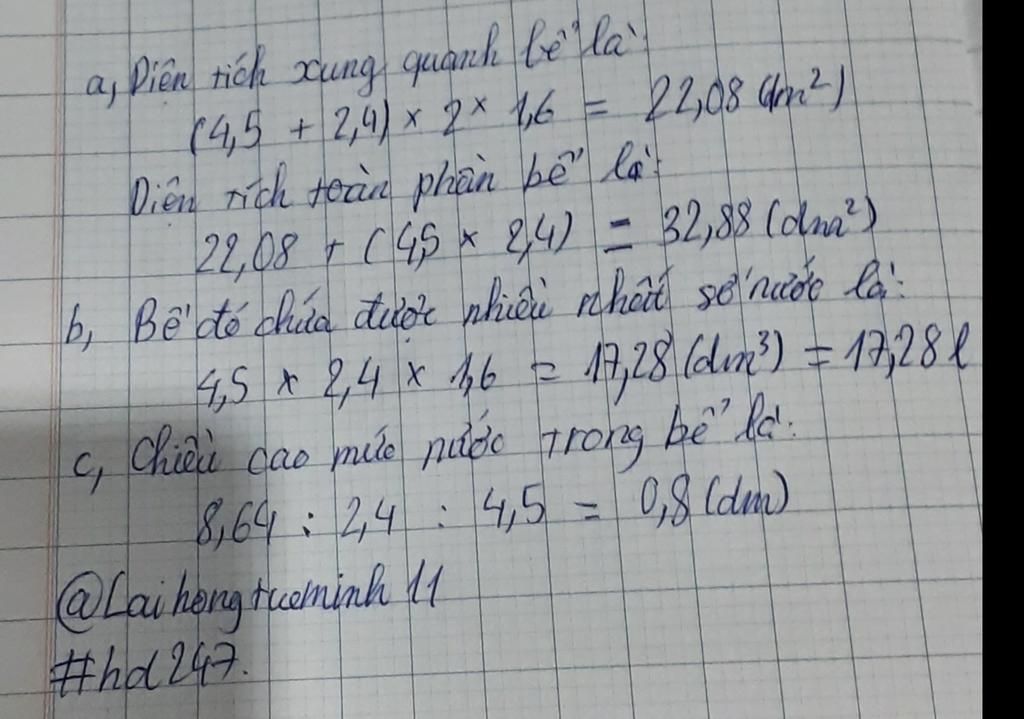 a, Diện tích xung quanh bể là:
(4,5 + 2,4) × 2 × 1,6 = 22,08 (dm²)
Diện tích toàn phần bể là:
22,08 + (4,5 × 2,4) = 32,88 (dm²)
b, Bể đó chứa được nhiều nhất số nước là:
4,5 × 2,4 × 1,6 = 17,28 (dm³) = 17,28 l
c, Chiều cao mức nước trong bể là:
8,64 : 2,4 : 4,5 = 0,8 (dm)
@Laihongtueminh 11
#hd247.